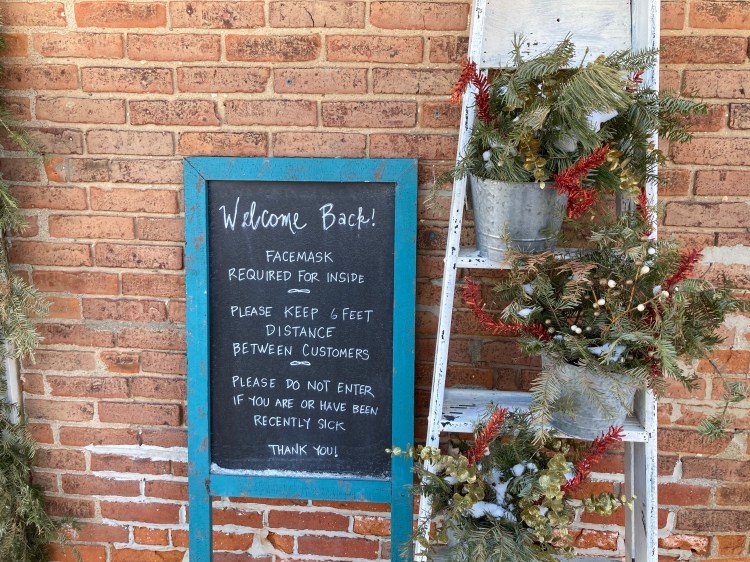 Welcome Back!
FACEMASK
REQUIRED FOR INSIDE
PLEASE KEEP 6 FEET
DISTANCE
BETWEEN CUSTOMERS
PLEASE DO NOT ENTER
IF YOU ARE OR HAVE BEEN
RECENTLY SICK
THANK YOU!